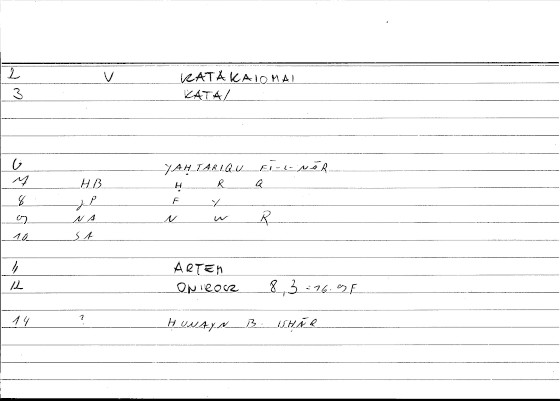 2 V KATAKAIOMAI
3 KATA/
6 YAḤTARIQU FĪ-L-NĀR
7 HB Ḥ R Q
8 JP F Y
9 NA N W R
10 SA
11 ARTEM
12 ONIROCR 8,3 = 16.9F
14 ? HUNAYN B. ISḤĀQ